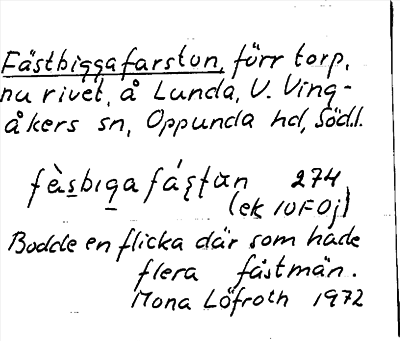 Fästbiggafarstun, förr torp,
nu rivet, å Lunda, V. Ving-
åkers sn, Oppunda hd, Södl.
fès̲bıga fáʂtɯn 274
(ek 10F0j)
Bodde en flicka där som hade
flera fästmän.
Mona Löfroth 1972